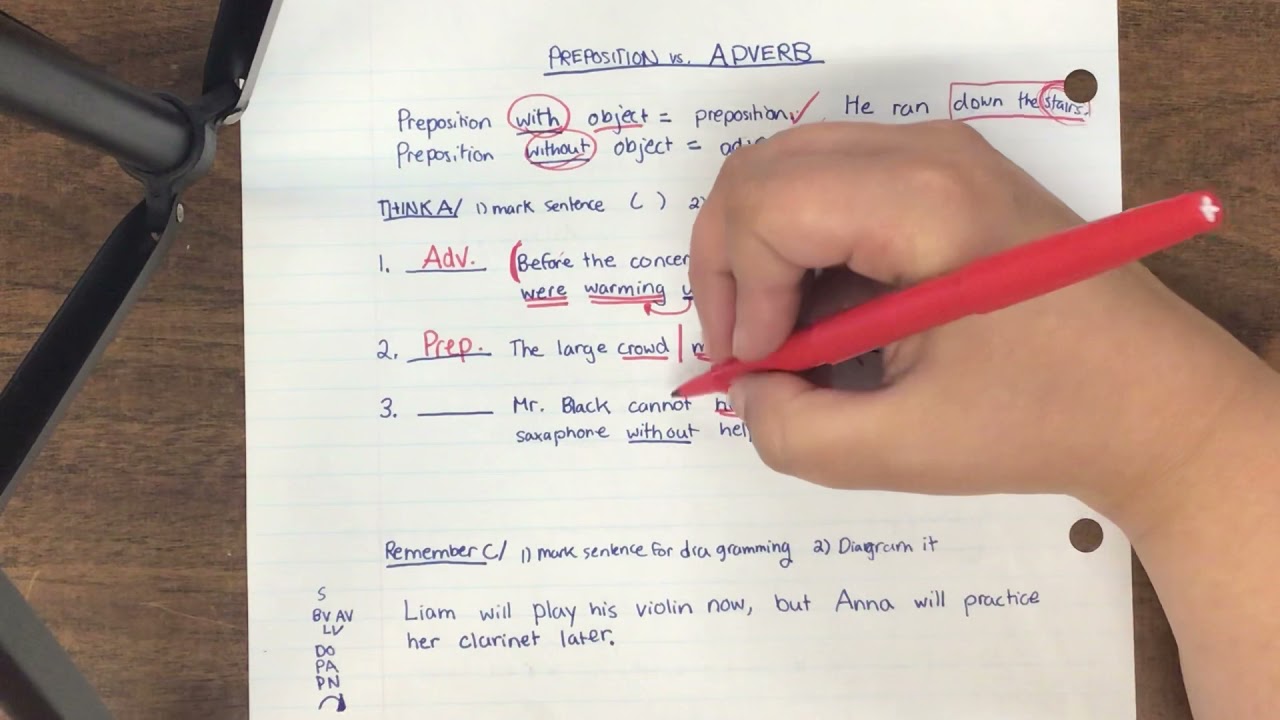 PREPOSITION vs. ADVERB
Preposition with object = preposition ✓ He ran down the stairs.
Preposition without object =
THINK A/ 1) mark sentence ( ) 2)
1. Adv. (Before the
were warming
2. Prep. The large crowd |
3. ______ Mr. Black cannot
saxaphone without
Remember C/ 1) mark sentence for dra gramming 2) Diagram it
S
BV AV
LV
DO
PA
PN
Liam will play his violin now, but Anna will practice
her clarinet later.